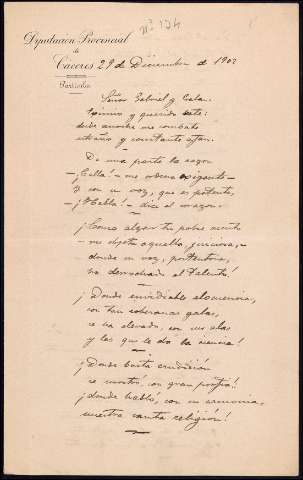 Nº 124
Diputación Provincial
de
Cáceres
Particular
29 de Diciembre de 1902
Señor Gabriel y Galan.
y querido
desde anoche me combate
extraño y constante afan.
De una parte la razon
—¡Calla!— me ordena exigente—
y con su voz, que es potente,
—¡Habla!— dice el corazon.
¡Como alzar tu pobre acento
—me objeta aquella, juiciosa,—
donde su voz, portentosa,
ha derrochado el talento!
¡Donde envidiable elocuencia,
con tan soberanas galas,
se ha elevado, con las alas
y las que le da la ciencia!
¡Donde tanta erudición
se mostró, con gran porfía!
¡donde habló, con su armonía,
nuestra santa religión!